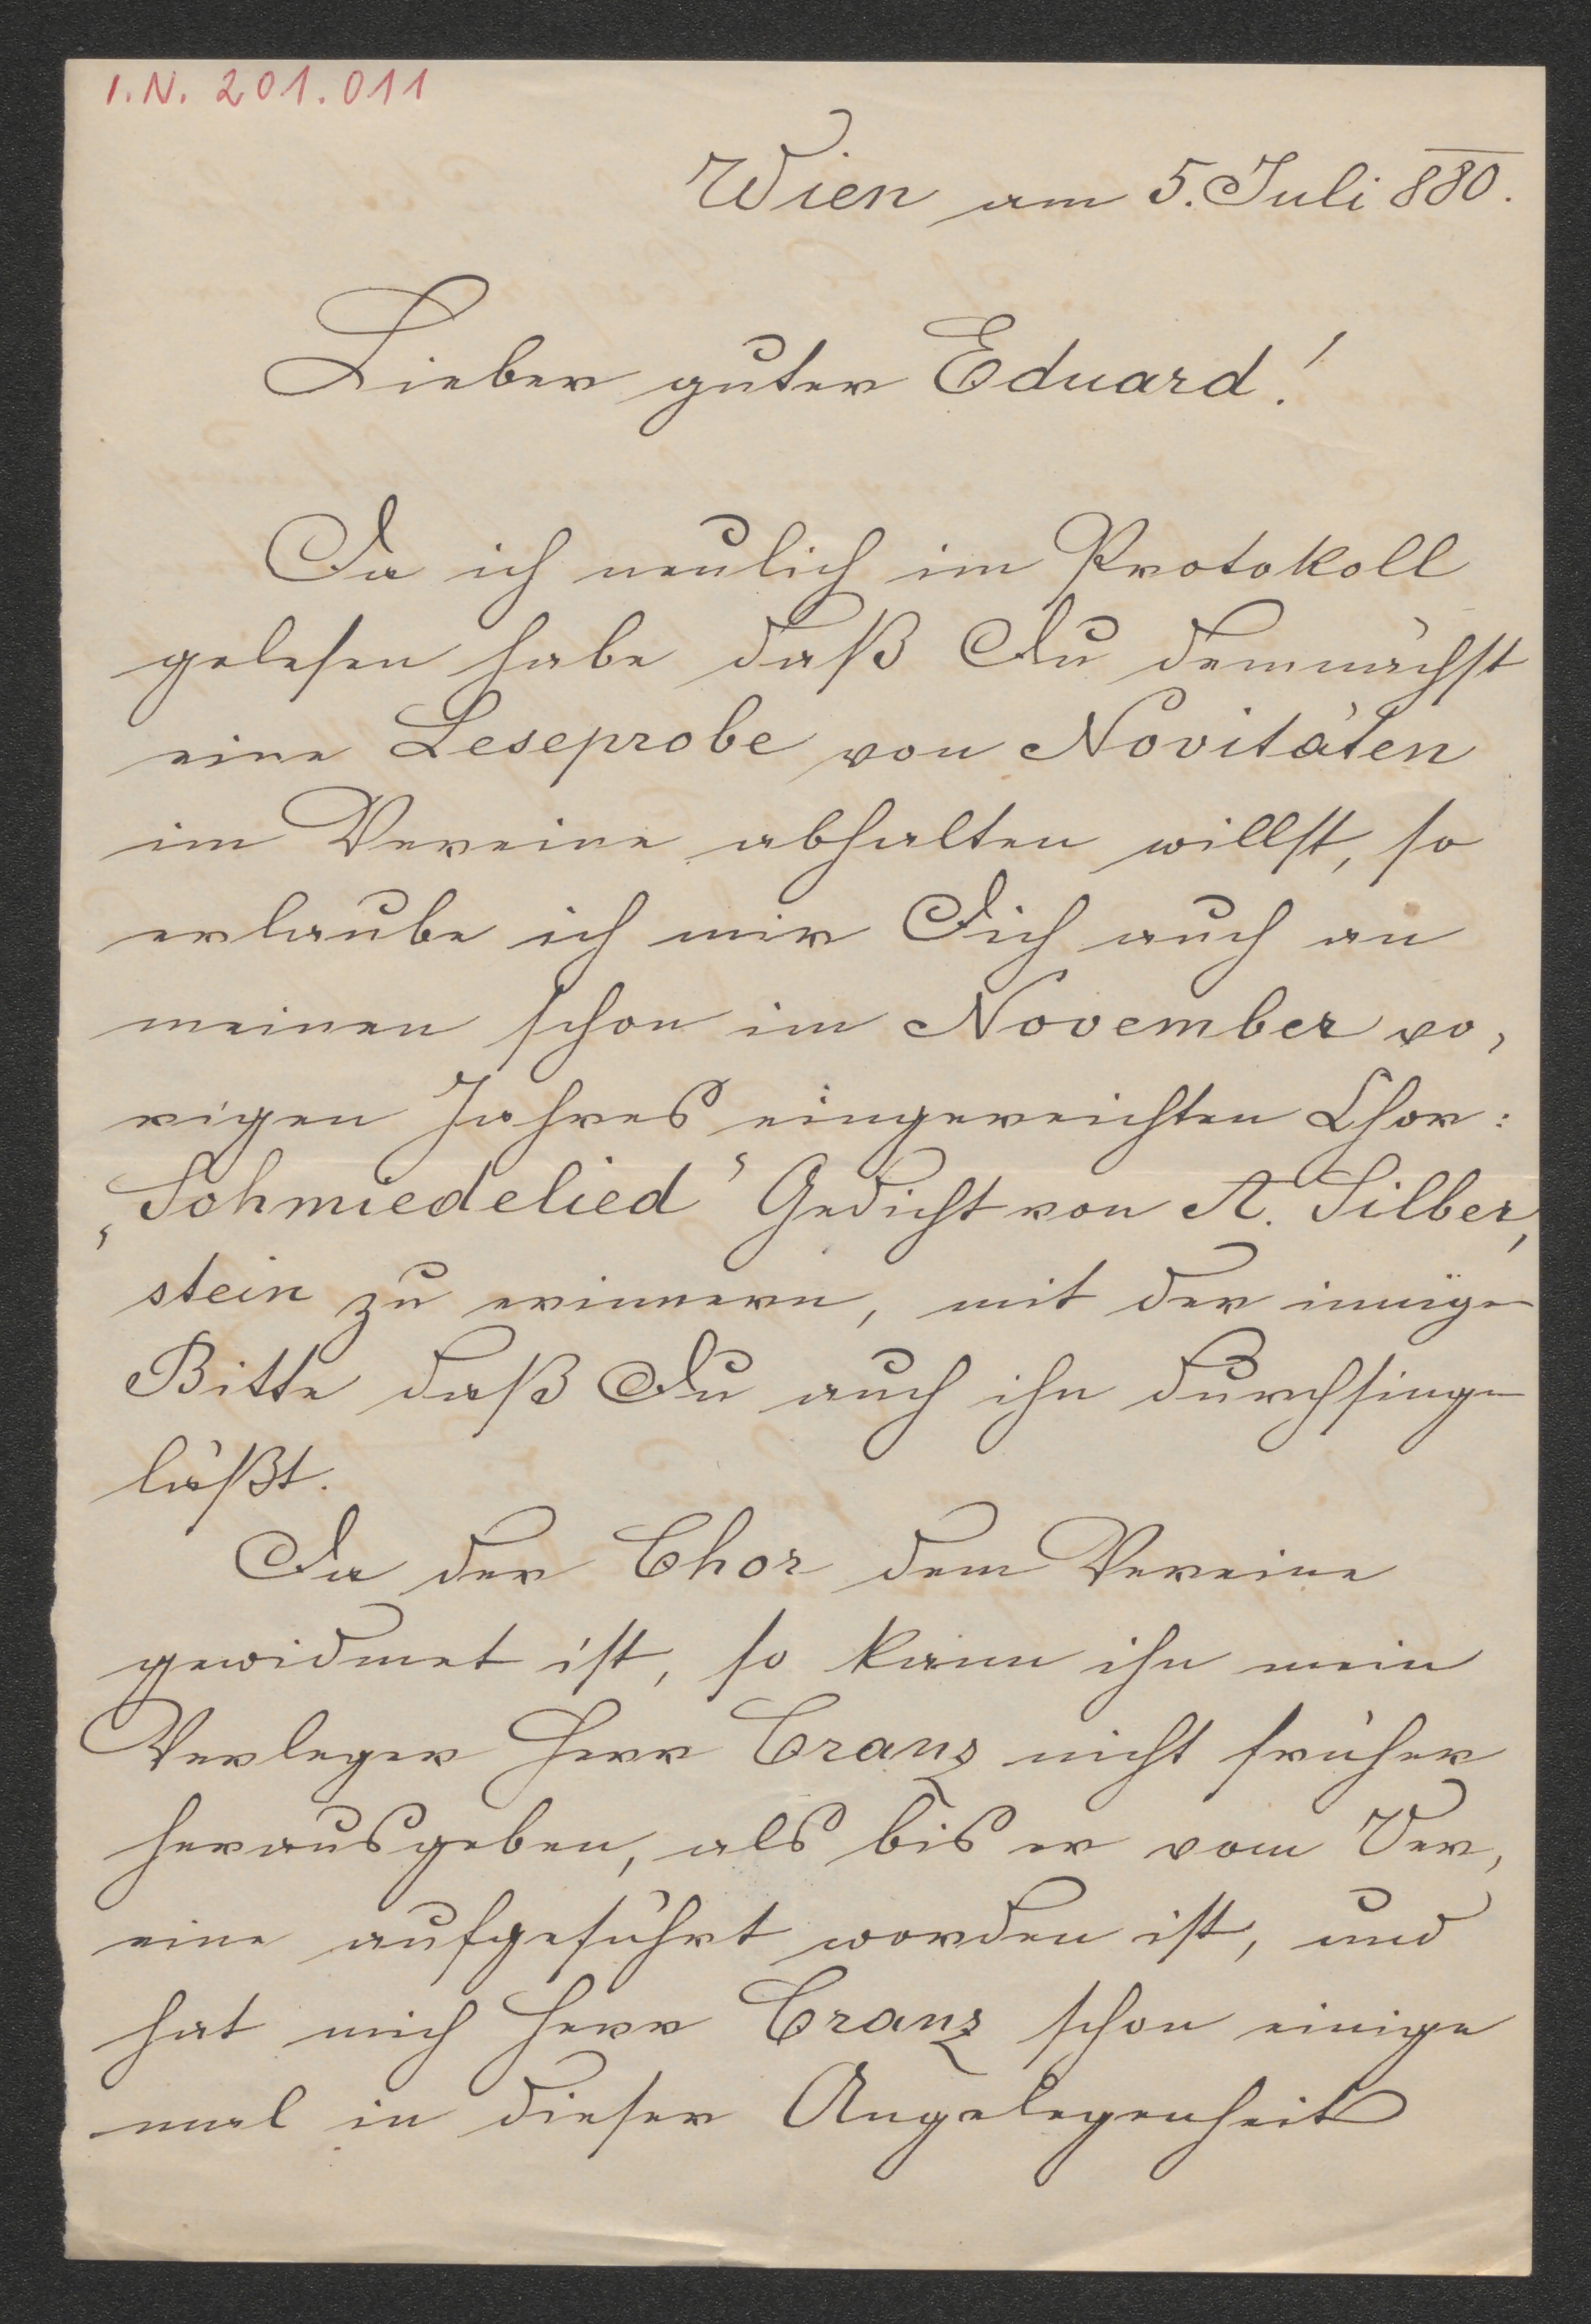 I.N. 201.011
Wien am 5. Juli 880.
Lieber guter Eduard!
Da ich neulich im Protokoll
gelesen habe daß Du demnächst
eine Leseprobe von Novitäten
im Vereine abhalten willst, so
erlaube ich mir Dich auch an
meinen schon im November vo,
rigen Jahres eingereichten Chor:
„Schmiedelied“ Gedicht von A. Silber,
stein zu erinnern, mit der innige
Bitte daß Du auch ihn durchsinge
läßt.
Da der Chor dem Vereine
gewidmet ist, so kann ihn mein
Verleger Herr Cranz nicht früher
herausgeben, als bis er vom Ver,
eine aufgeführt worden ist, und
hat mich Herr Cranz schon einige
mal in dieser Angelegenheit